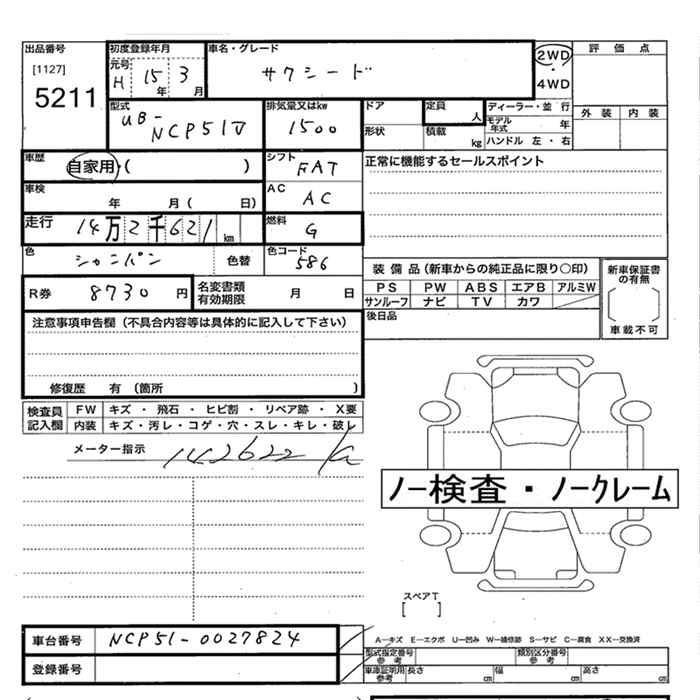 出品番号
[1127]
5211
初度登録年月
元号
H 15年 3月
車名・グレード
サクシード
2WD
・
4WD
評価点
外装 内装
型式
UB-
NCP51V
排気量又はkw
1500
ドア
形状
定員
人
積載
kg
ディーラー・並行
モデル年式 年
ハンドル 左・右
車歴
自家用・( )
シフト
FAT
正常に機能するセールスポイント
車検
年 月( 日)
AC
AC
走行
14万2千621km
燃料
G
色
シャンパン
色替
色コード
586
R券
8730円
名変書類
有効期限
月 日
装備品(新車からの純正品に限り○印)
PS PW ABS エアB アルミW
サンルーフ ナビ TV カワ
新車保証書
の有無
車載不可
後日品
注意事項申告欄(不具合内容等は具体的に記入して下さい)
修復歴 有(箇所 )
検査員
記入欄
FW キズ・飛石・ヒビ割・リペア跡・X要
内装 キズ・汚レ・コゲ・穴・スレ・キレ・破レ
メーター指示
142622
ノー検査・ノークレーム
スペアT
[ ]
車台番号
NCP51-0027824
登録番号
A-キズ E-エクボ U-凹み W-補修跡 S-サビ C-腐食 XX-交換済
型式指定番号
参考
類別区分番号
参考
車庫証明用
参考
長さ cm
幅 cm
高さ cm